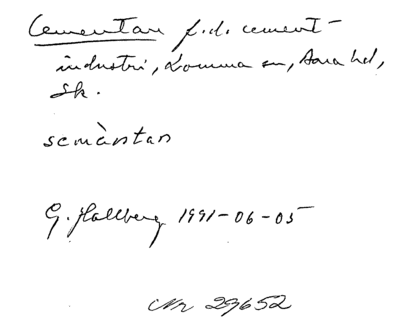 Cementan f.d. cement-
industri, Lomma sn, Bara hd,
Sk.
semàntan
G. Hallberg 1991-06-05
Nr 29652